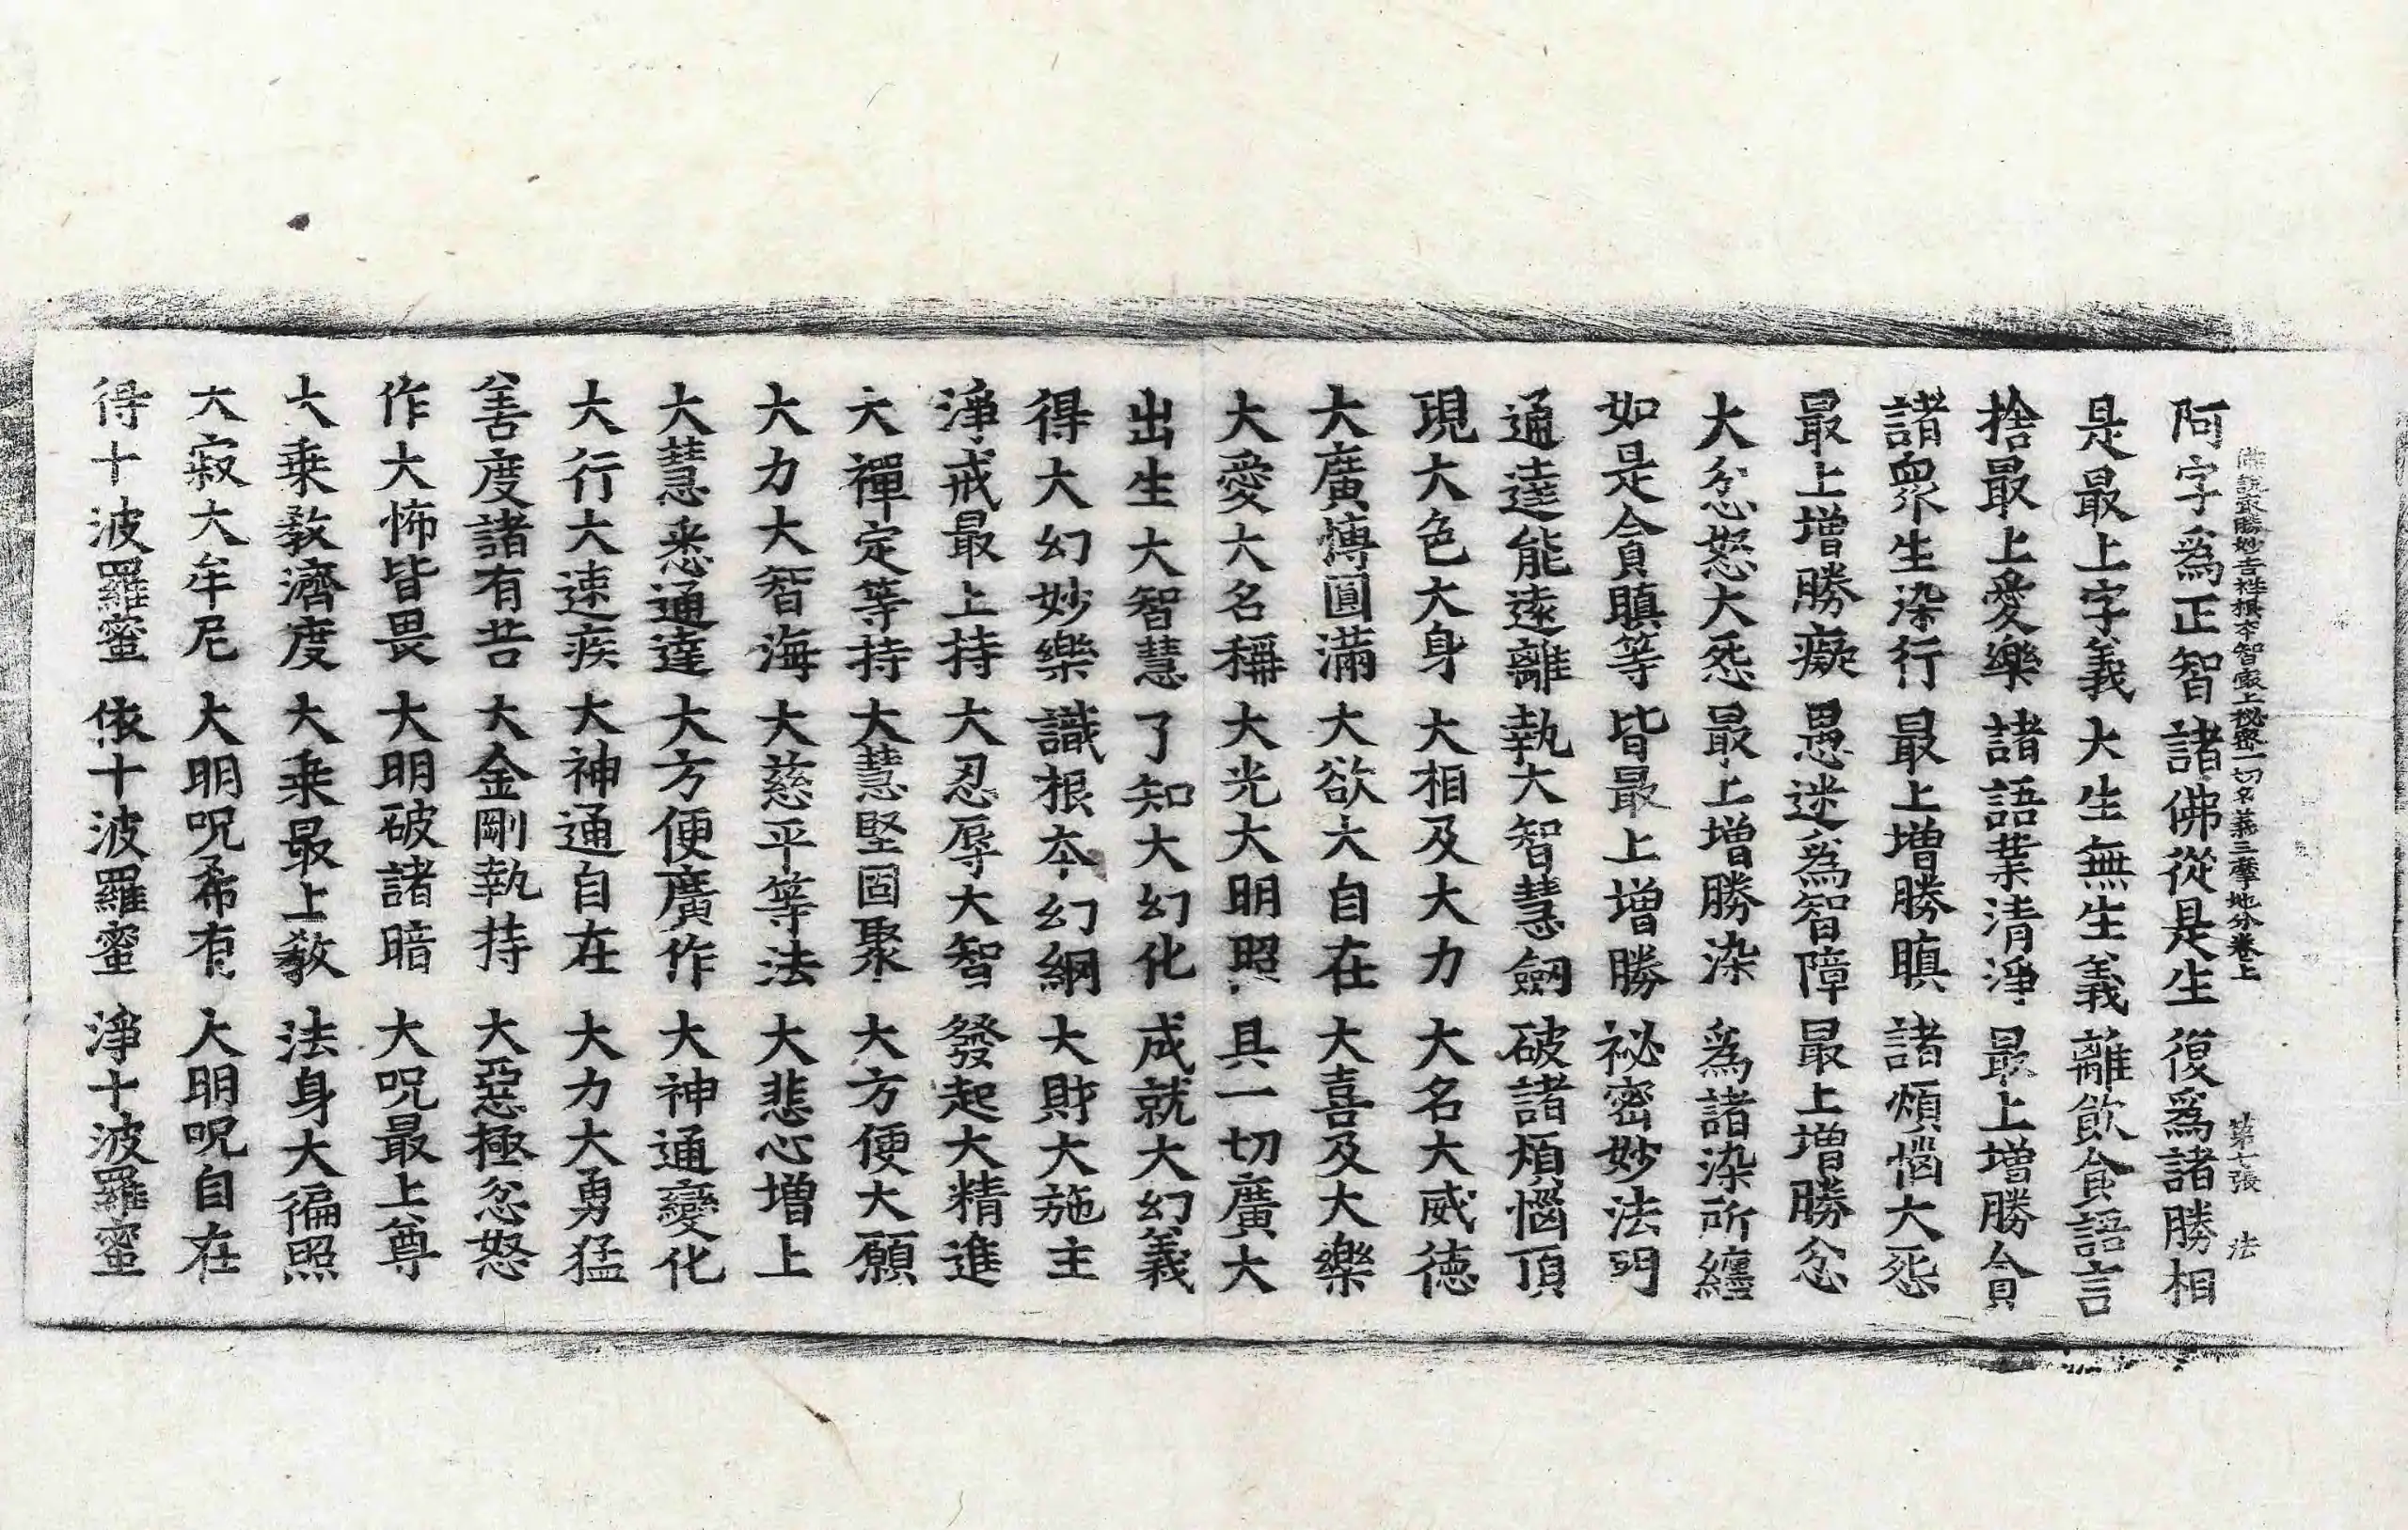 佛說最勝妙吉祥根本智最上秘密一切名義三摩地分卷上 第七張 法
阿字爲正智 諸佛從是生 復爲諸勝相
是最上字義 大生無生義 離飮食語言
捨最上愛樂 諸語業清淨 最上增勝貪
諸衆生染行 最上增勝瞋 諸煩惱大㤪
最上增勝癡 愚迷爲智障 最上增勝忿
大忿怒大㤪 最上增勝染 爲諸染所纏
如是貪瞋等 皆最上增勝 祕密妙法門
通達能遠離 執大智慧劒 破諸煩惱頂
現大色大身 大相及大力 大名大威德
大廣慱圓滿 大欲大自在 大喜及大樂
大愛大名稱 大光大明照 具一切廣大
出生大智慧 了知大幻化 成就大幻義
得大幻妙樂 識根本幻網 大財大施主
淨戒最上持 大忍辱大智 發起大精進
大禪定等持 大慧堅固聚 大方便大願
大力大智海 大慈平等法 大悲心增上
大慧悉通達 大方便廣作 大神通變化
大行大速疾 大神通自在 大力大勇猛
善度諸有苦 大金剛執持 大惡極忿怒
作大怖皆畏 大明破諸暗 大呪最上尊
大乗敎濟度 大乗最上敎 法身大徧照
大寂大牟尼 大明呪希有 大明呪自在
得十波羅蜜 依十波羅蜜 淨十波羅蜜